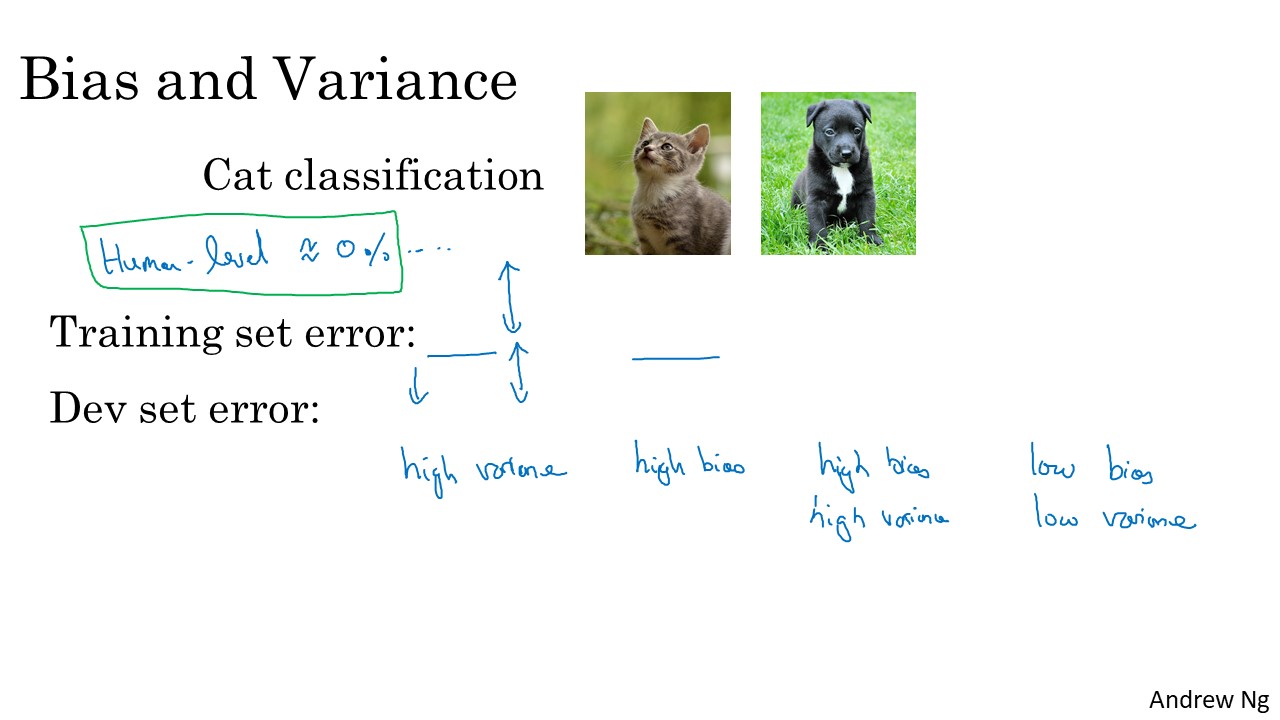 Bias and Variance
Cat classification
Human-level ≈ 0% ....
Training set error:
Dev set error:
high variance high bias high bias low bias
high variance low variance
Andrew Ng